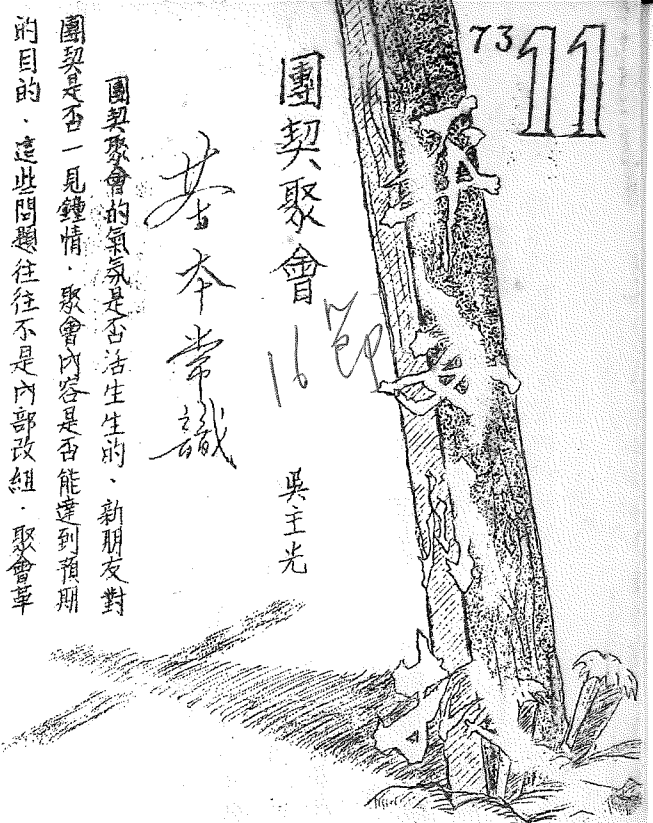 73 11
團契聚會
基本常識
吳主光
團契聚會的氣氛是否活生生的、新朋友對
團契是否一見鐘情．聚會內容是否能達到預期
的目的．這些問題往往不是內部改組．聚會革
16